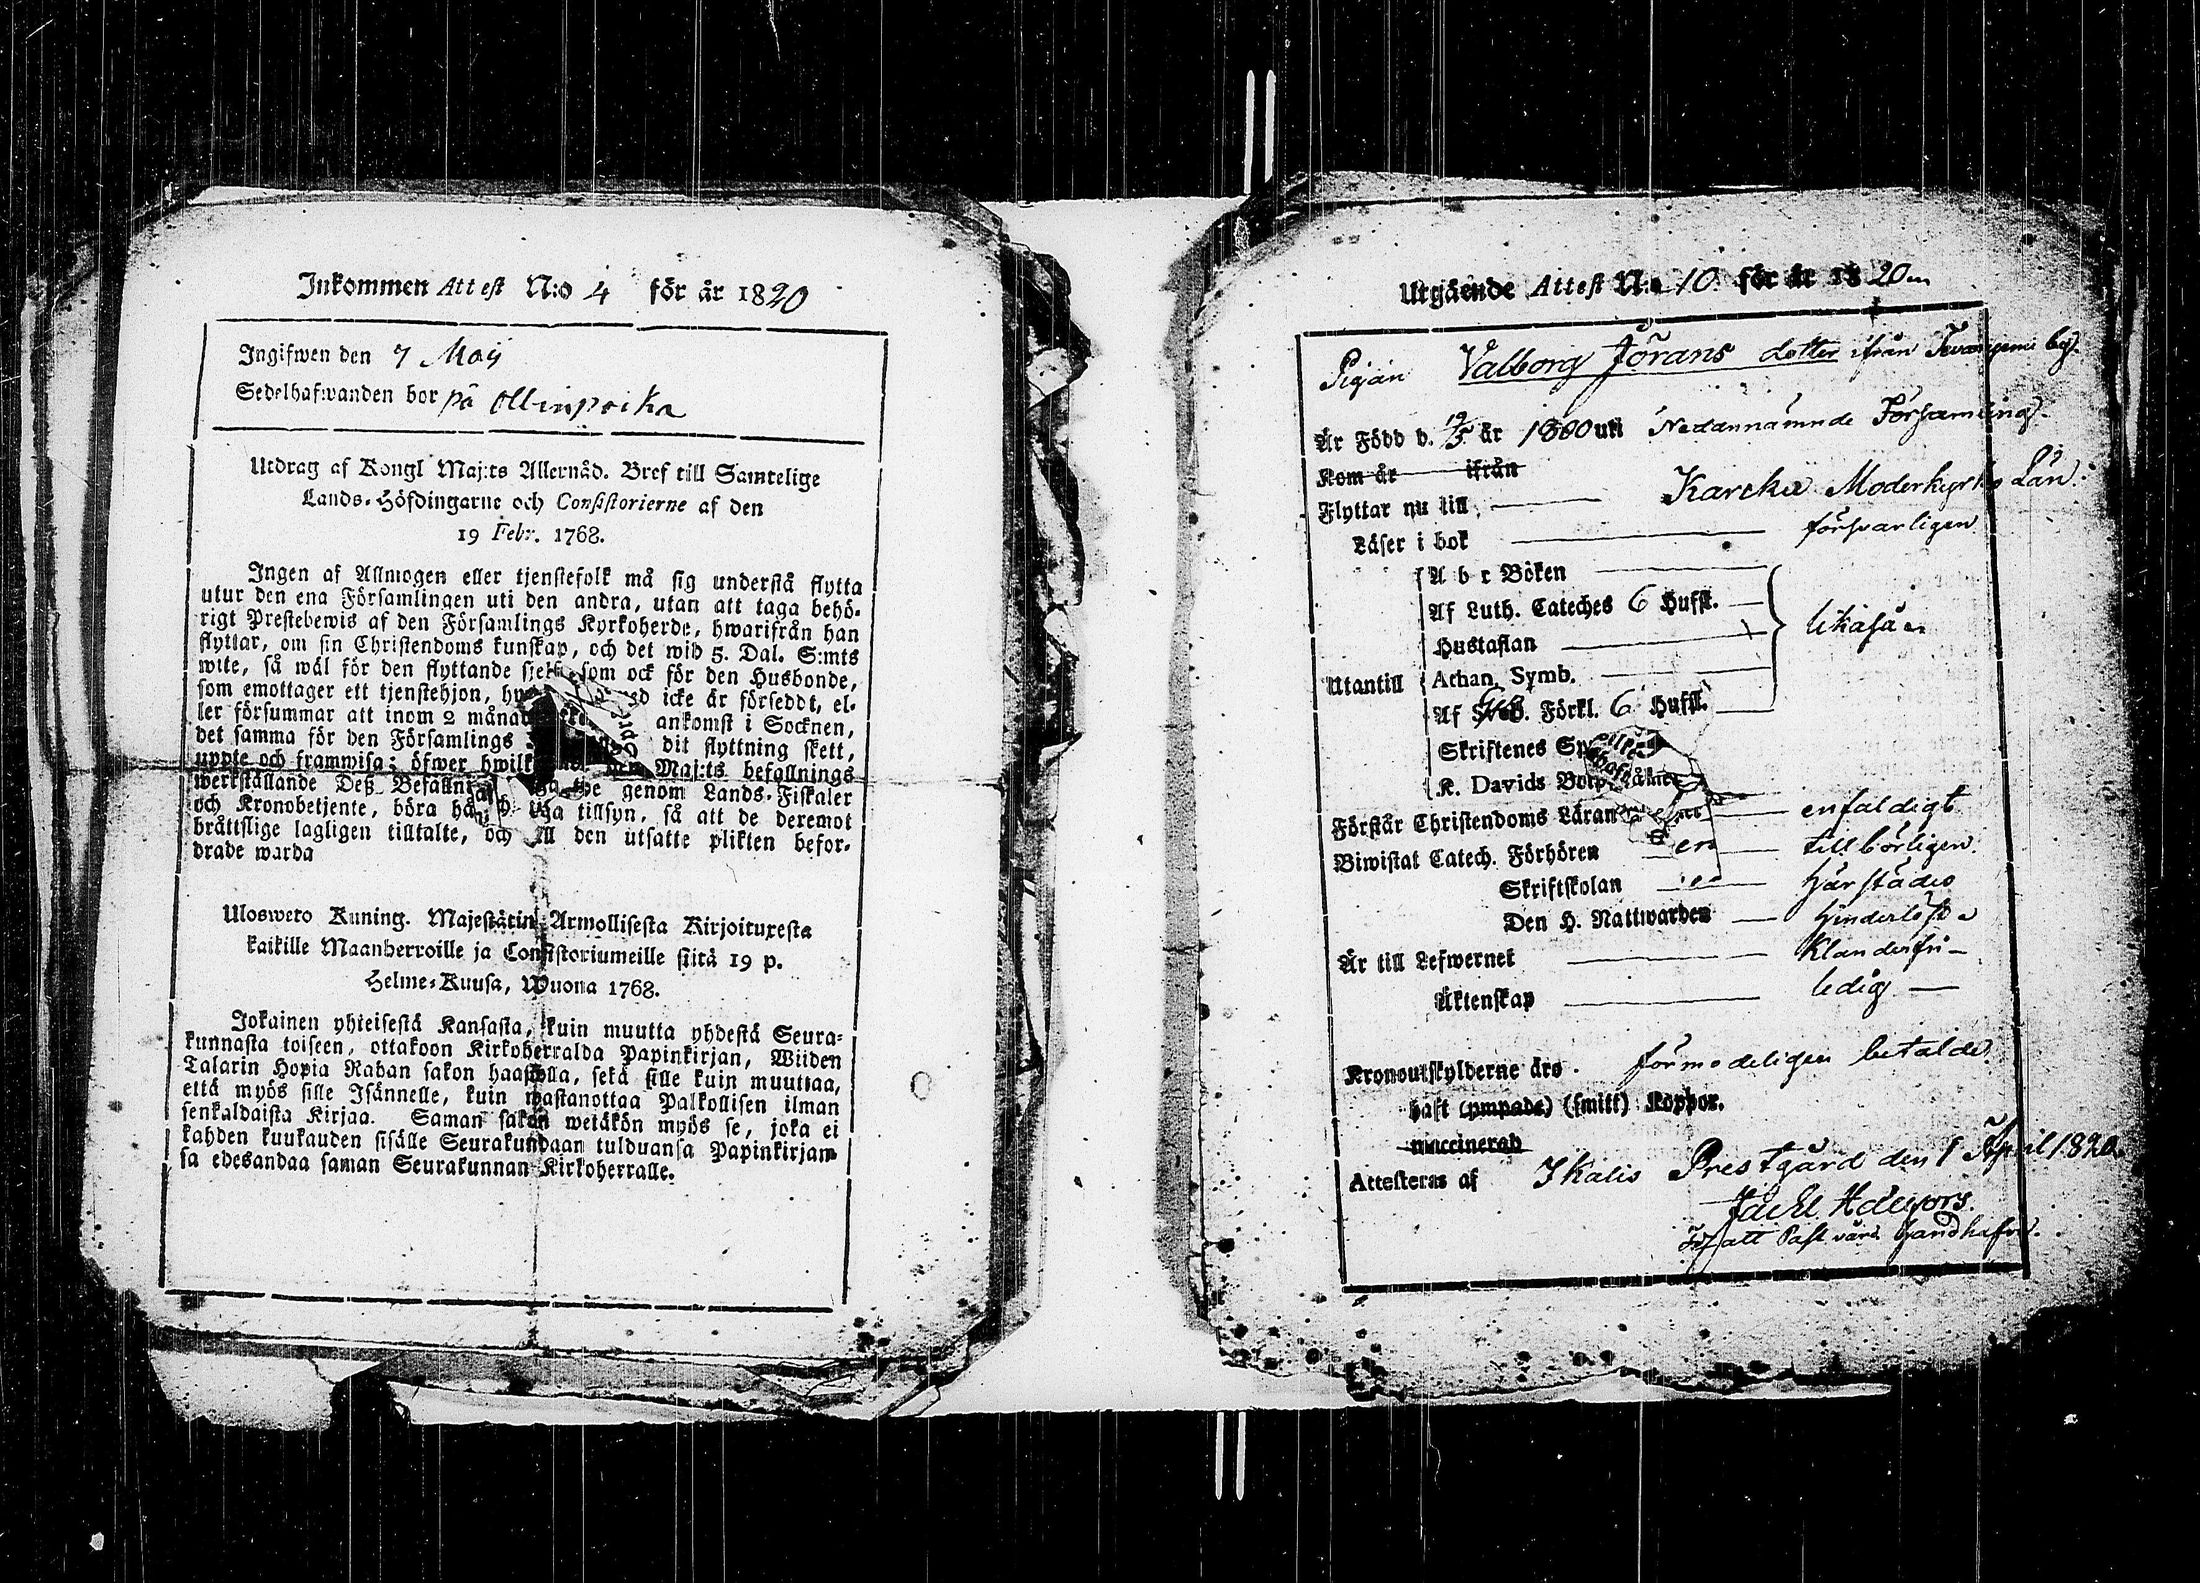 Inkommen Attest N:o 4 för år 1820
Ingifwen den 7 Maij
Sedelhafwanden bor på Ollinpoika
Utdrag af Kongl Maj:ts Allernåd. Bref till Samtelige
Lands-Höfdingarne och Consistorierne af den
19 Febr. 1768.
Ingen af Allmogen eller tjenstefolk må sig understå flytta
utur den ena Församlingen uti den andra, utan att taga behö-
rigt Prestebewis af den Församlings Kyrkoherde, hwarifrån han
flyttar, om sin Christendoms kunskap, och det wid 5. Dal. S:mts
wite, så wäl för den flyttande som ock för den Husbonde,
som emottager ett tjenstehjon, icke är försedt, el-
ler försummar att inom 2 månad ankomst i Socknen,
det samma för den Församlings dit flyttning skett,
uppte och framwisa; öfwer hwilk Maj:ts befallnings
werkställande Deß Befallni genom Lands-Fiskaler
och Kronobetjente, böra tillsyn, så att de deremot
bråttslige lagligen tilltalte, och till den utsatte plikten befor-
drade warda
Ulosweto Kuning. Majestätin Armollisesta Kirjoituxesta
kaikille Maanherroille ja Consistoriumeille siitä 19 p.
Helme-Kuusa, Wuona 1768.
Jokainen yhteisestä Kansasta, kuin muutta yhdestä Seura-
kunnasta toiseen, ottakoon Kirkoherralda Papinkirjan, Wiiden
Talarin Hopia Rahan sakon haastolla, sekä sille kuin muuttaa,
että myös sille Isännelle, kuin wastanottaa Palkollisen ilman
senkaldaista Kirjaa. Saman sakon wetäkön myös se, joka ei
kahden kuukauden sisälle Seurakundaan tulduansa Papinkirjan-
sa edesandaa saman Seurakunnan Kirkoherralle.
Utgående Attest N:o 10 för år 1820
Pigan Valborg Jörans dotter ifrån by.
Är Född d. 19/5 år 1800 uti Nedannämnde Församling.
Kom år ifrån
Flyttar nu till Karcku Moderkyrko Län.
Läser i bok försvarligen
A b c Boken
Af Luth. Cateches 6 Hufst.
Hustaflan likaså
Utantill Athan. Symb.
Af Förkl. 6 Hufst.
Skriftenes
K. Davids
Förstår Christendoms Läran enfaldigt
Biwistat Catech. Förhören tillbörligen.
Skriftskolan härstädes
Den H. Nattwarden
Är till Lefwernet Klanderfri
Äktenskap ledig
Kronoutskylderne äro förmodeligen betalde.
haft (ympade) (smitt) Koppor.
waccinerad
Attesteras af Ikalis Prestgård den 1 April 1820.